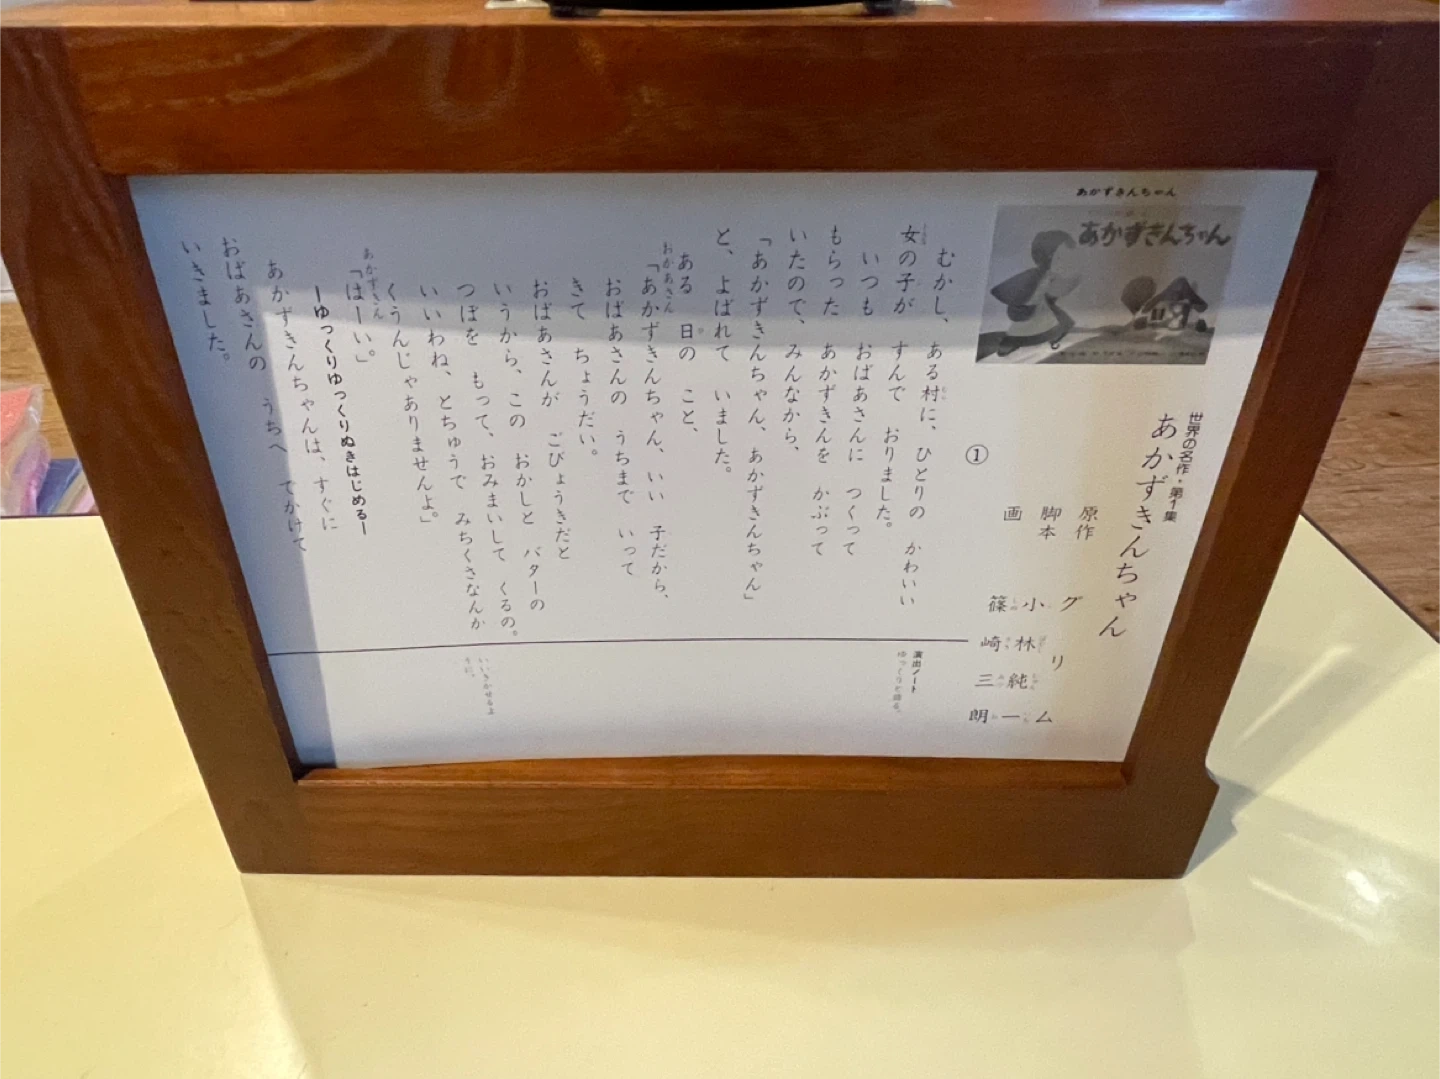 あかずきんちゃん
あかずきんちゃん
世界の名作・第1集
あかずきんちゃん
原作 グリム
脚本 小林純一
画 篠崎三朗
①
むかし、ある村に、ひとりの かわいい
女の子が すんで おりました。
いつも おばあさんに つくって
もらった あかずきんを かぶって
いたので、みんなから、
「あかずきんちゃん、あかずきんちゃん」
と、よばれて いました。
ある 日の こと、
おかあさん
「あかずきんちゃん、いい 子だから、
おばあさんの うちまで いって
きて ちょうだい。
おばあさんが ごびょうきだと
いうから、この おかしと バターの
つぼを もって、おみまいして くるの。
いいわね、とちゅうで みちくさなんか
くうんじゃありませんよ。」
あかずきん
「はーい。」
ーゆっくりゆっくりぬきはじめるー
あかずきんちゃんは、すぐに
おばあさんの うちへ でかけて
いきました。
演出ノート
ゆっくりと語る。
いいきかせるよ
うに。